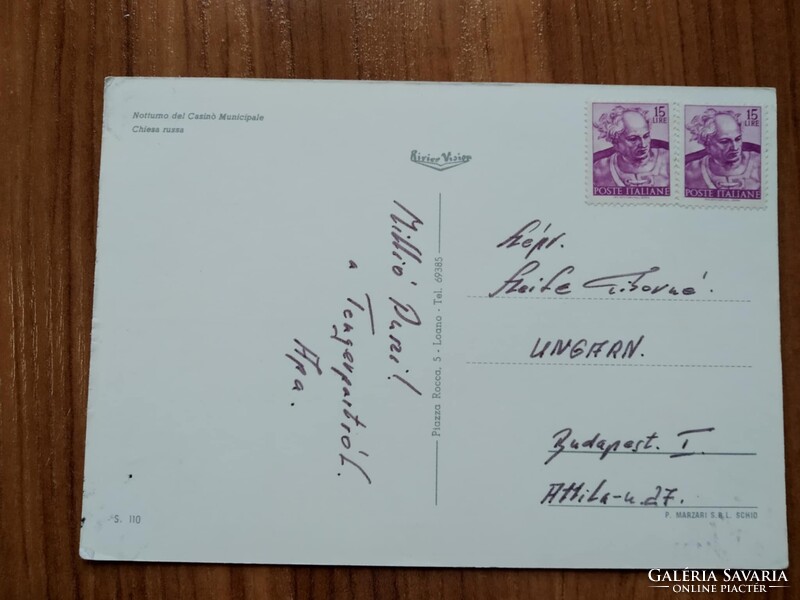 Notturno del Casinò Municipale
Chiesa russa
Rivier Vision
15
LIRE
POSTE ITALIANE
15
LIRE
POSTE ITALIANE
Millió Puszi!
a Tengerpartról.
Apa.
Piazza Rocca, 5 - Loano - Tel. 69385
Szépr.
Tiborné.
UNGARN.
Budapest. I.
Attila-u. 27.
S. 110
P. MANZARI S.R.L. SCHIO
GALÉRIA SAVARIA
ONLINE PIACTÉR